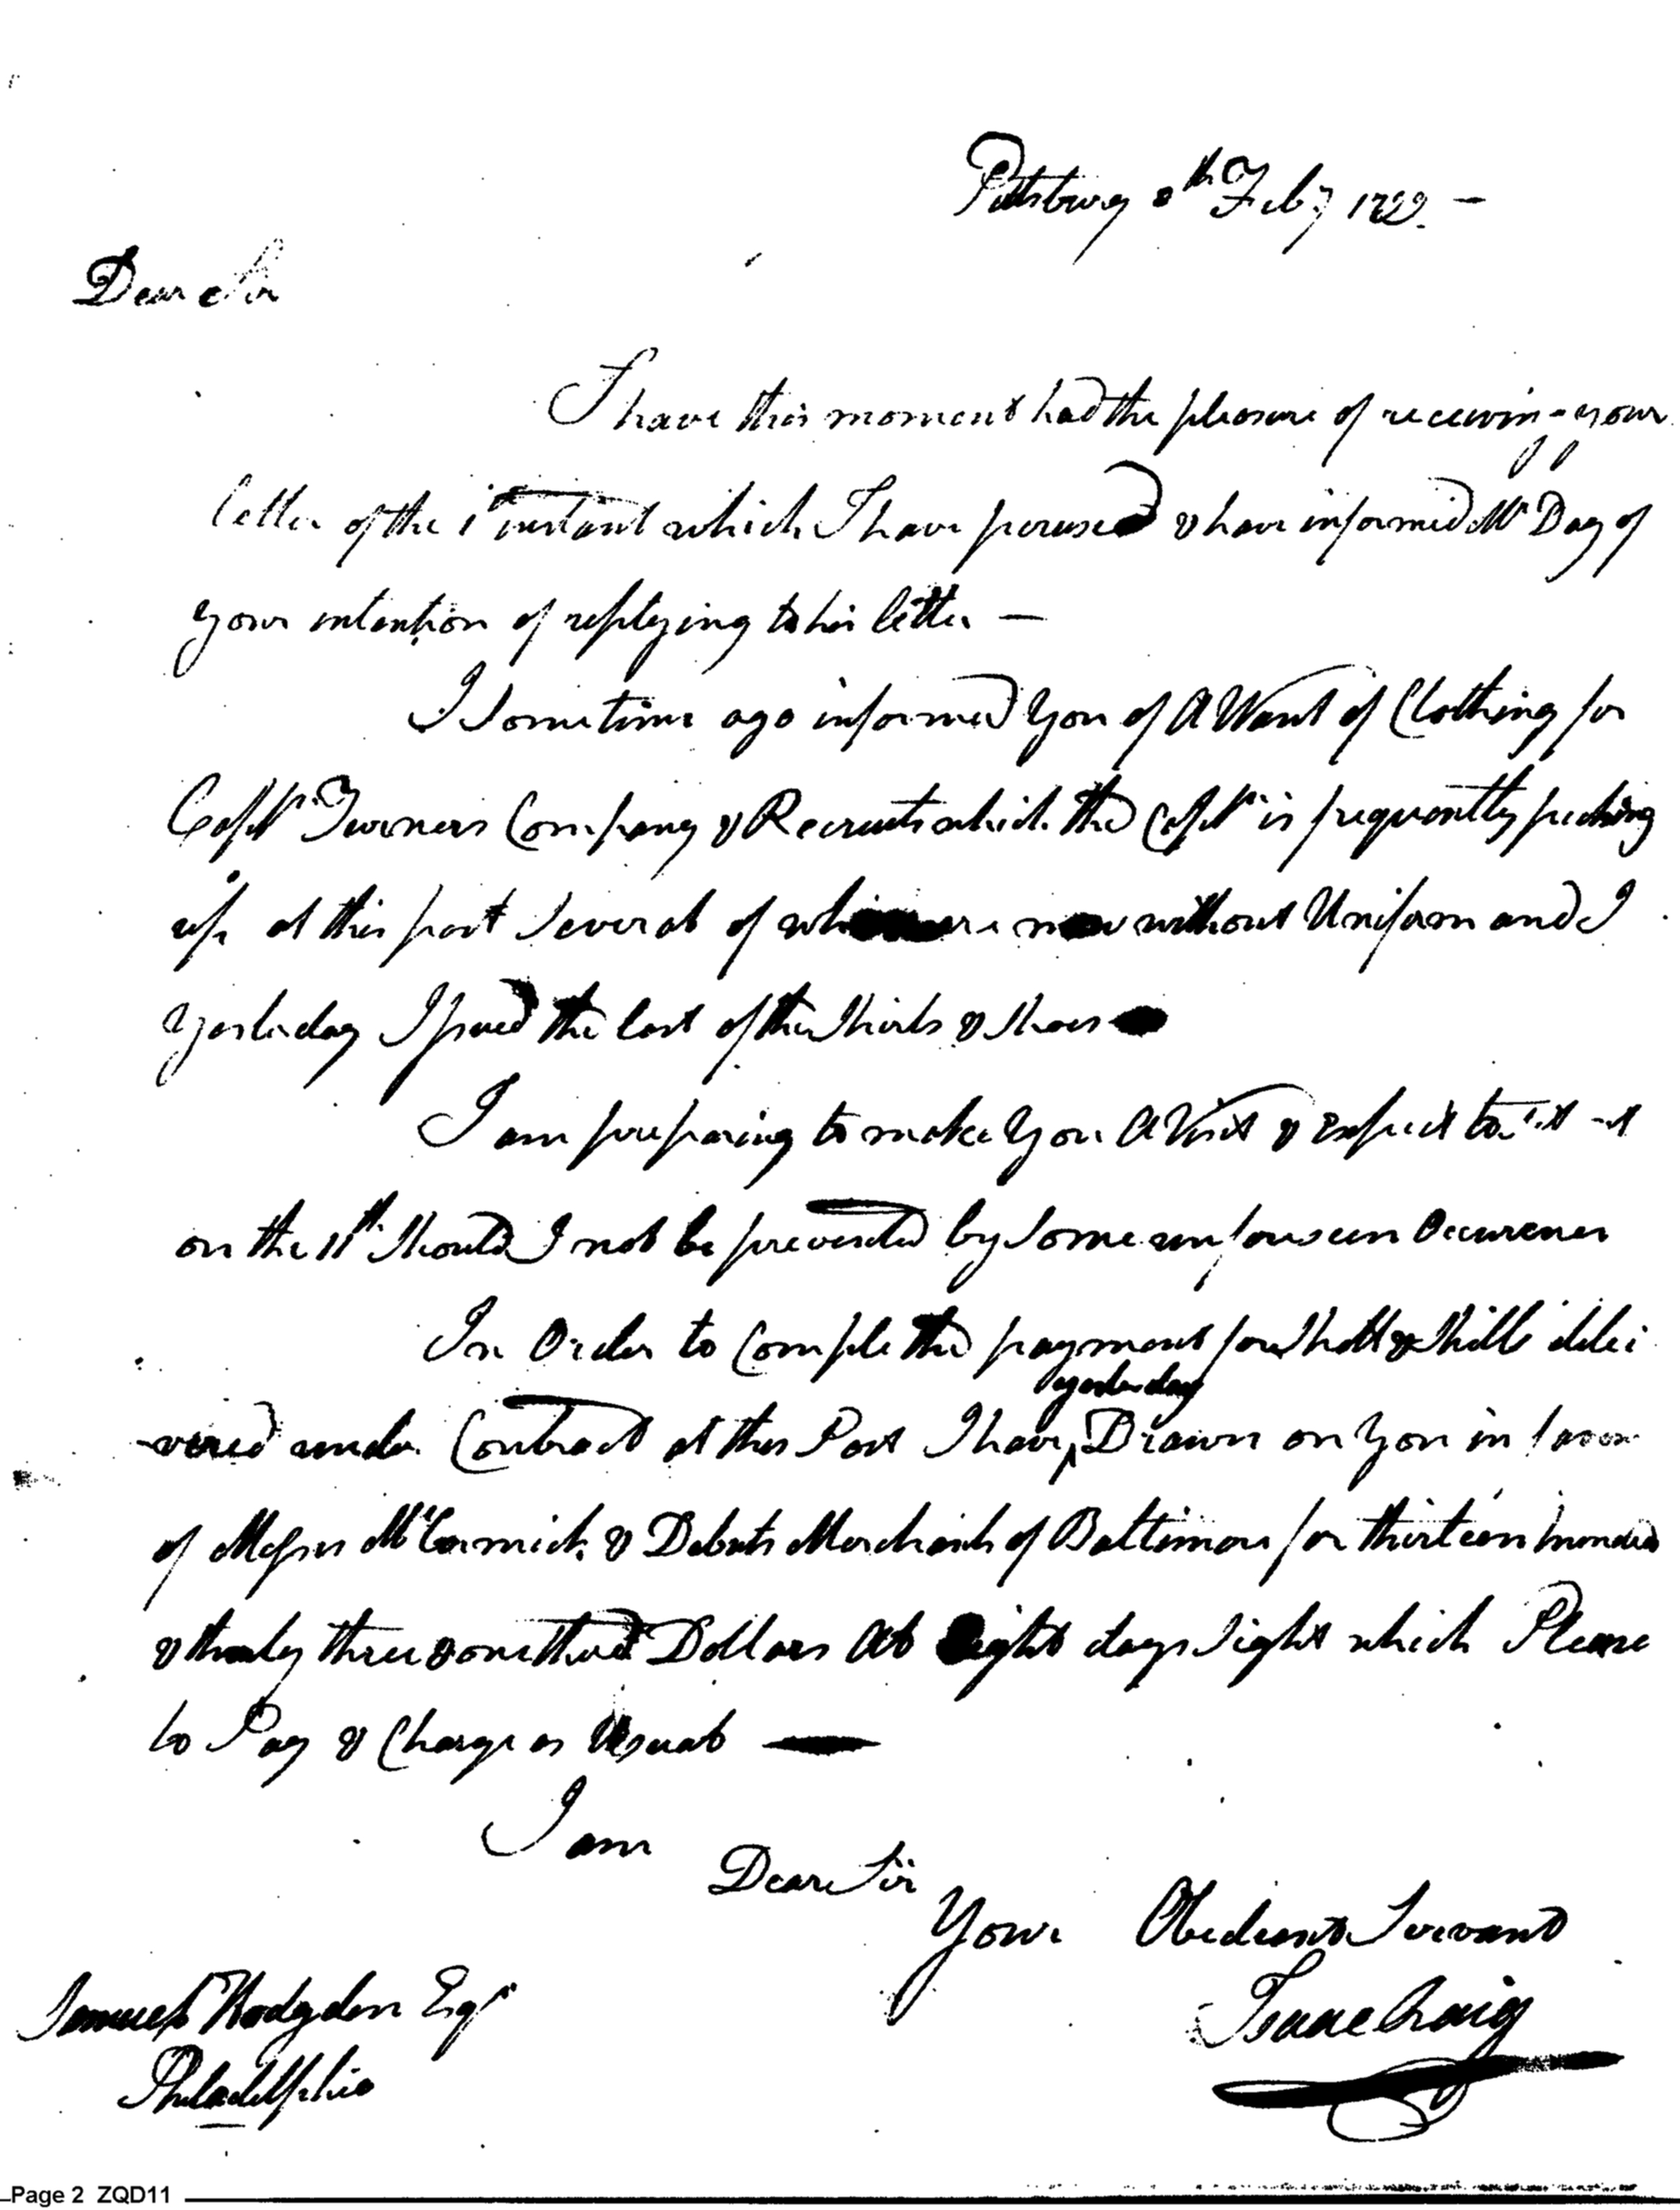 Pittsburg 8th Feby 1799. —
Dear Sir
I have this moment had the pleasure of receiving your
letter of the 1st instant which I have perused & have informed Mr Day of
your intention of replying to his letter —
I Sometime ago informed You of A Want of Clothing for
Captn Turners Company & Recruits which the Captn is frequently picking
up at this post Several of whom are now without Uniform and I
Yesterday Issued the last of the Shirts & Shoes
I am preparing to make You A Visit & Expect to
on the 11th Should I not be prevented by Some unforeseen Occurence
In Order to Complete the payment for Shott & Shills deli
-vered under Contract at this Post I have yesterday Drawn on You in favor
of Messrs McCormick & Merchants of Baltimore for thirteen hundred
& three & one third Dollars At Eight days Sight which Please
to Pay & Charge as Usual —
I am
Dear Sir
Your Obedient Servant
Isaac Craig
Samuel Hodgdon Esqr
Philadelphia
Page 2 ZQD11